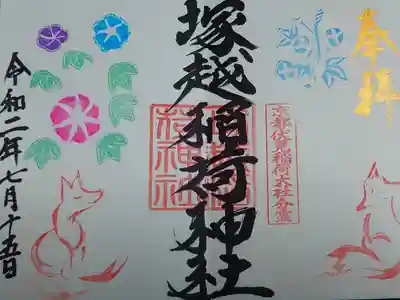 奉拝
京都伏見稲荷大社分霊
塚越稲荷神社
令和二年七月十五日